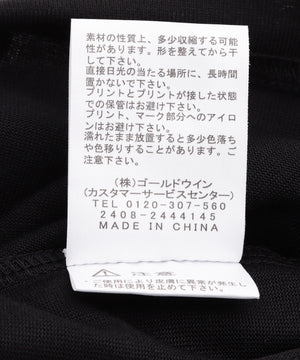 素材の性質上、多少収縮する可能
性があります。形を整えてから干
して下さい。
直接日光の当たる場所に、長時間
置かないで下さい。
プリントとプリントが接した状態
での保管はお避け下さい。
プリント、マーク部分へのアイロ
ンはお避け下さい。
濡れたまま放置すると多少色落ち
や色移りすることがあります。ご
注意下さい。
(株)ゴールドウイン
(カスタマーサービスセンター)
TEL 0120-307-560
2408-2444145
MADE IN CHINA
⚠ 注意
・ご使用により皮膚に異常が生じ
た時は使用を止めて下さい。